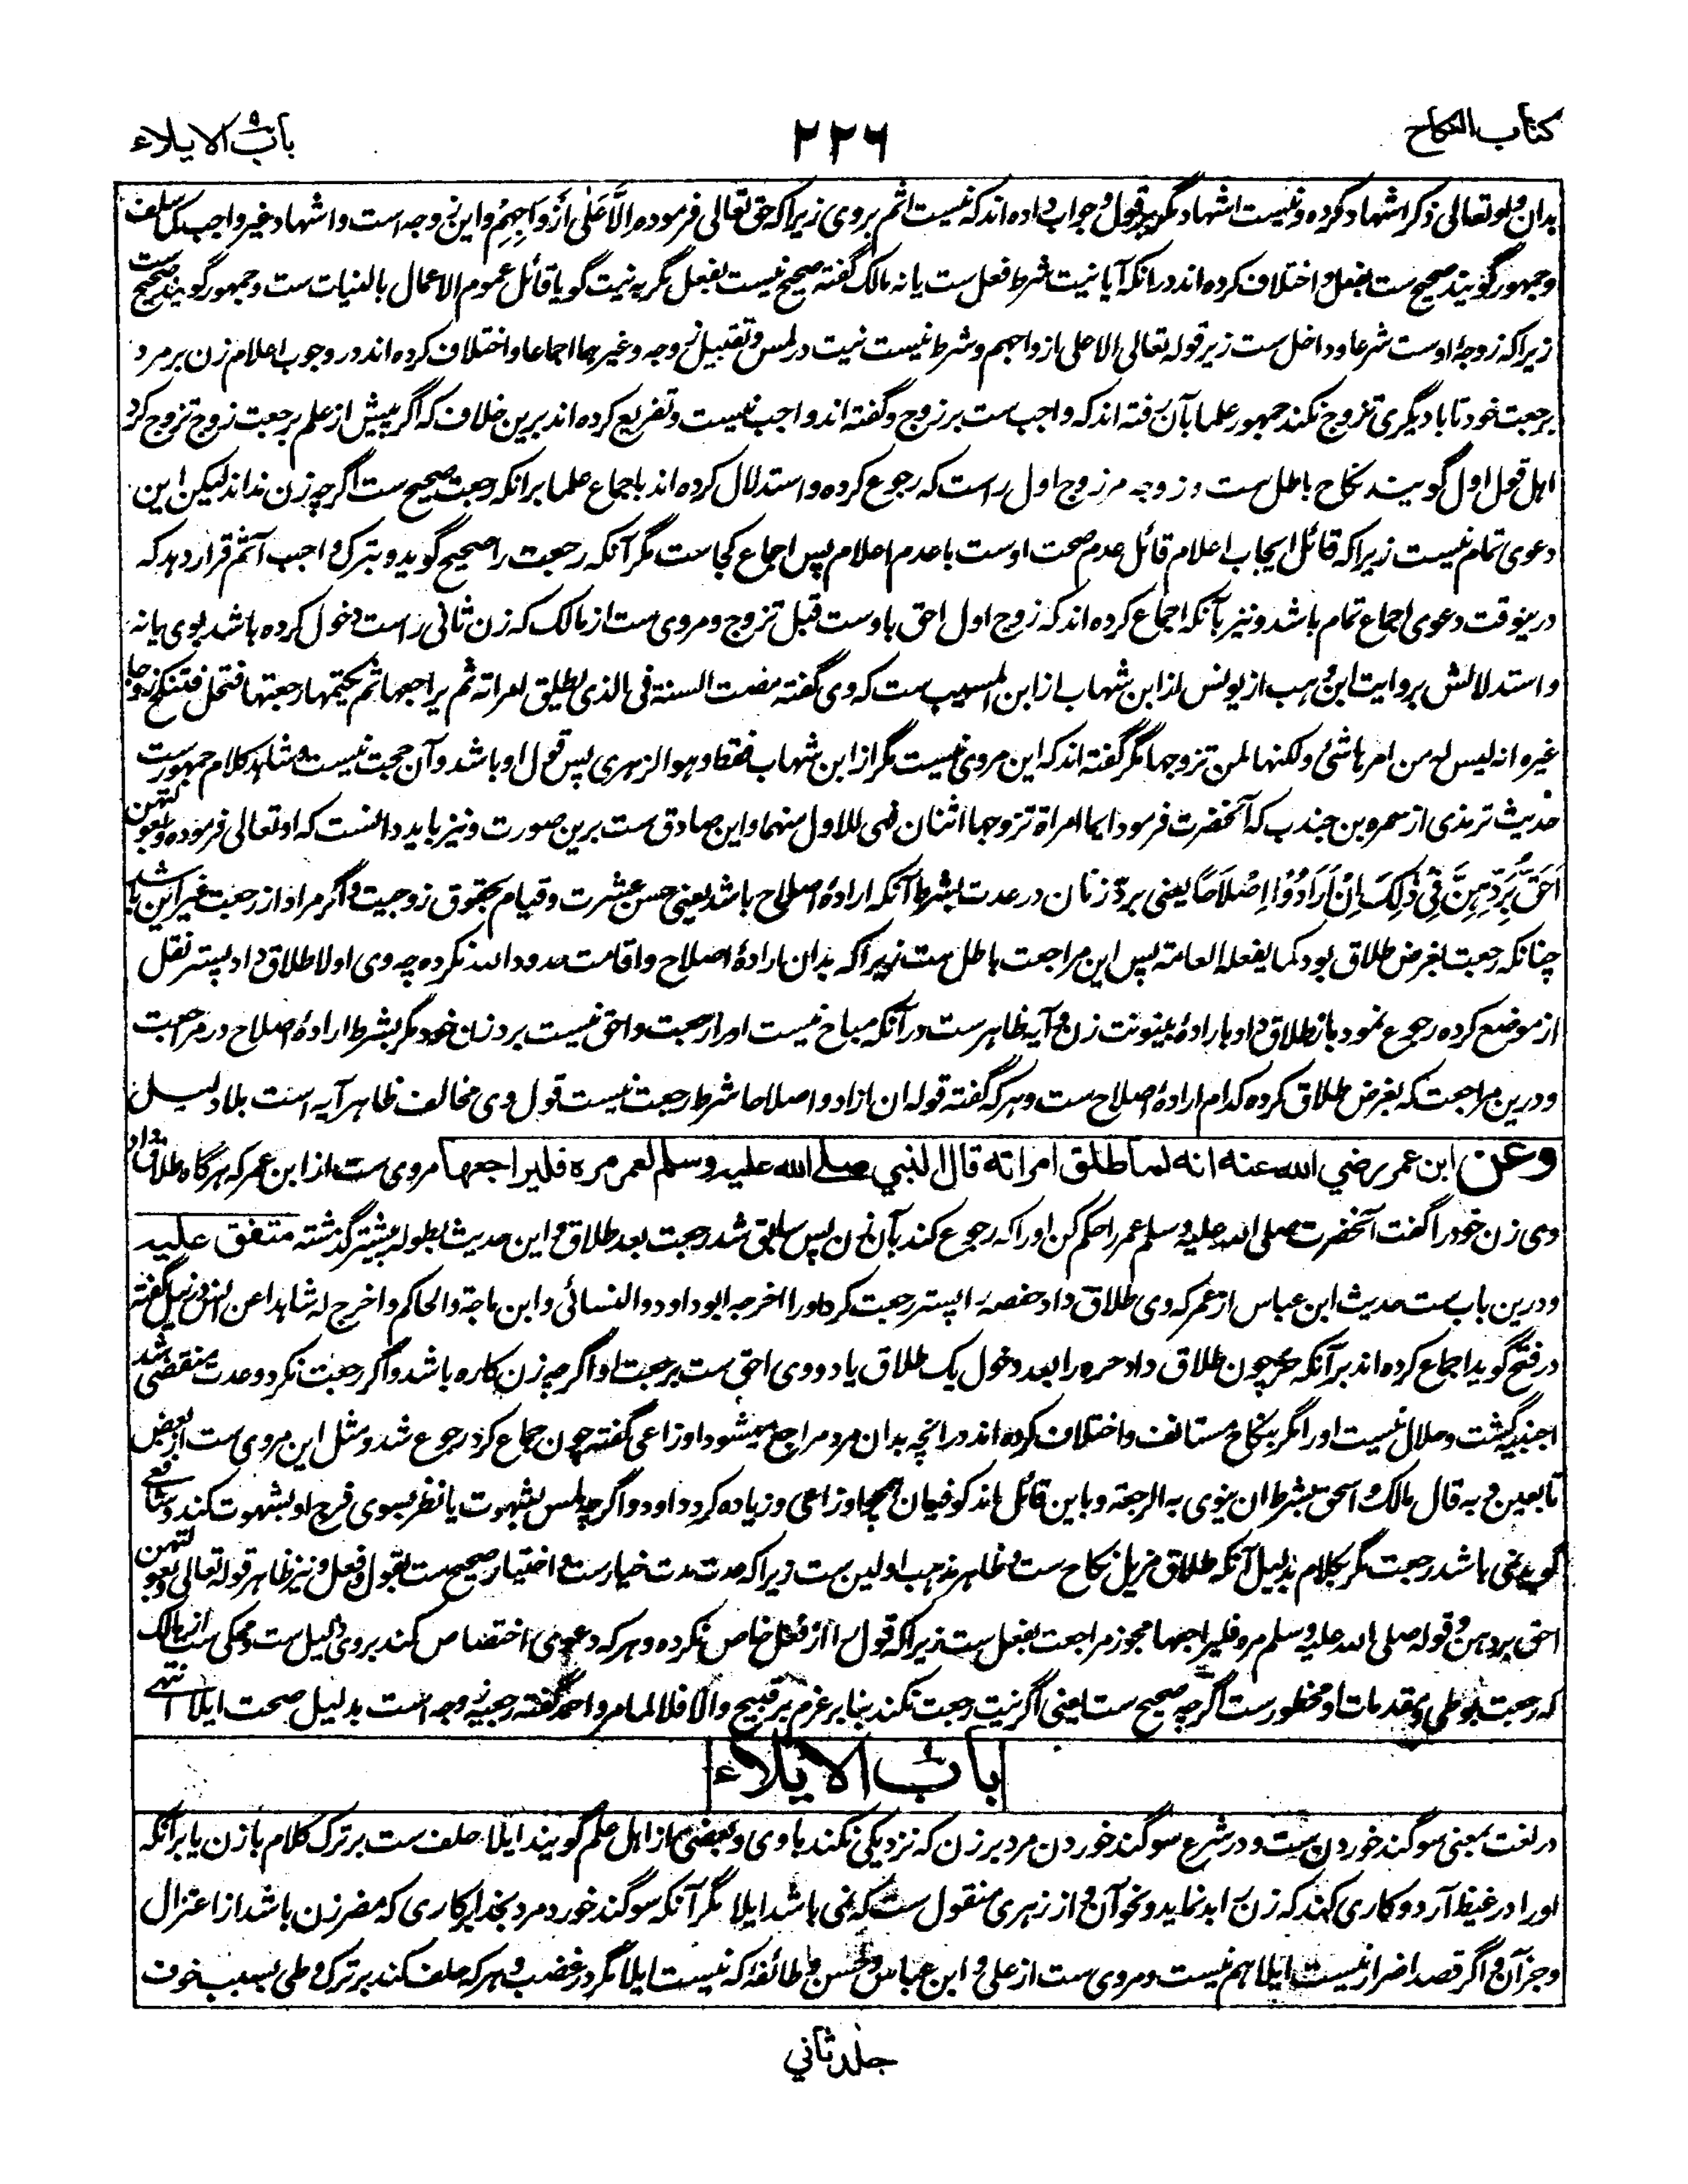 کتاب النکاح
۲۲۶
باب الایلاء
بدان و او تعالی ذکر اشهاد کرده و نیست اشهاد مگر بر قول و جواب داده اند که نیست اثم بر وی زیرا که حق تعالی فرموده اِلَّا عَلٰی اَزْوَاجِهِمْ و این زوجه است و اشهاد غیر واجب کما سلف
و جمهور گویند صحیح ست بفعل و اختلاف کرده اند در انکه آیا نیت شرط فعل ست یا نه مالک گفته صحیح نیست بفعل مگر به نیت گویا قائل عموم الاعمال بالنیات ست و جمهور گویند صحیح ست
زیرا که زوجهٔ اوست شرعا و داخل ست زیر قوله تعالی الا علی ازواجهم و شرط نیست نیت در لمس و تقبیل زوجه و غیرهما اجماعا و اختلاف کرده اند در وجوب اعلام زن بر مرد
برجعت خود تا با دیگری تزوج نکند جمهور علما بآن رفته اند که واجب ست بر زوج و گفته اند واجب نیست و تفریع کرده اند برین خلاف که اگر پیش از علم برجعت زوج تزوج کرد
اهل قول اول گویند نکاح باطل ست و زوجه مر زوج اول راست که رجوع کرده و استدلال کرده اند باجماع علما بر انکه رجعت صحیح ست اگرچه زن نداند لیکن این
دعوی تمام نیست زیرا که قائل ایجاب اعلام قائل عدم صحت اوست با عدم اعلام پس اجماع کجاست مگر آنکه رجعت را صحیح گوید و بترک واجب آثم قرار دهد که
درینوقت دعوی اجماع تمام باشد و نیز بآنکه اجماع کرده اند که زوج اول احق باوست قبل تزوج و مروی ست از مالک که زن ثانی راست دخول کرده باشد بوی یا نه
و استدلالش بروایت ابن وهب از یونس از ابن شهاب از ابن المسیب ست که وی گفته مضت السنة فی الذی یطلق امراته ثم یراجعها ثم یکتمها رجعتها فتحل فتنکح زوجا
غیره انه لیس له من امرها شئ ولکنها لمن تزوجها مگر گفته اند که این مروی نیست مگر از ابن شهاب فقط و هو الزهری پس قول او باشد و آن حجت نیست و شاهد کلام جمهورست
حدیث ترمذی از سمره بن جندب که آنحضرت فرمود ایما امراة تزوجها اثنان فهی للاول منهما و این صادق ست برین صورت و نیز باید دانست که او تعالی فرموده وبعولتهن
اَحَقُّ بِرَدِّهِنَّ فِیْ ذٰلِکَ اِنْ اَرَادُوْا اِصْلَاحًا یعنی برد زنان در عدت بشرط آنکه ارادهٔ اصلاح باشد یعنی حسن عشرت و قیام بحقوق زوجیت و اگر مراد از رجعت غیر این باشد
چنانکه رجعت بغرض طلاق بود کما یفعله العامة پس این مراجعت باطل ست زیرا که بدان ارادهٔ اصلاح و اقامت حدود الله نکرده چه وی اولا طلاق داد پستر نقل
از موضع کرده رجوع نمود باز طلاق داد بارادهٔ بینونت زن و آیه ظاهرست در آنکه مباح نیست او را رجعت و احق نیست برد زن خود مگر بشرط ارادهٔ اصلاح در مراجعت
و درین مراجعت که بغرض طلاق کرده کدام ارادهٔ اصلاح ست و هر که گفته قوله ان ارادوا اصلاحا شرط رجعت نیست قول وی مخالف ظاهر آیه است بلا دلیل
وعن ابن عمر رضي الله عنه انه لما طلق امراته قال النبي صلے الله علیه وسلم لعمر مره فلیراجعها مروی ست از ابن عمر که هرگاه طلاق داد
وی زن خود را گفت آنحضرت صلی الله علیه وسلم عمر را حکم کن او را که رجوع کند بآن زن پس ملحق شد رجعت بعد طلاق و این حدیث بطوله پیشتر گذشته متفق علیه
و درین باب ست حدیث ابن عباس از عمر که وی طلاق داد حفصه را پستر رجعت کرد او را اخرجه ابوداود والنسائی وابن ماجة والحاکم و اخرج له شاهدا عن انس در نیل گفته
در فتح گوید اجماع کرده اند بر آنکه حر چون طلاق داد حره را بعد دخول یک طلاق یا دو وی احق ست برجعت او اگرچه زن کاره باشد و اگر رجعت نکرد و عدت منقضی شد
اجنبیه گشت و حلال نیست او را مگر بنکاح مستانف و اختلاف کرده اند در انچه بدان مرد مراجع میشود اوزاعی گفته چون جماع کرد رجوع شد و مثل این مروی ست از بعض
تابعین و به قال مالک و اسحق بشرط ان ینوی به الرجعة و باین قائل اند کوفیان همچو اوزاعی و زیاده کردد اود و اگرچه لمس بشهوت یا نظر بسوی فرج او بشهوت کند و شافعی
گوید نمی باشد رجعت مگر بکلام بدلیل آنکه طلاق مزیل نکاح ست و ظاهر مذهب اولین ست زیرا که عدت مدت خیارست و اختیار صحیح ست بقول و فعل و نیز ظاهر قوله تعالی وبعولتهن
احق بردهن و قوله صلی الله علیه وسلم مره فلیراجعها مجوز مراجعت بفعل ست زیرا که قول را از فعل خاص نکرده و هر که دعوی اختصاص کند بر وی دلیل ست و محکی ست از مالک
که رجعت بوطی و مقدمات او محظورست اگرچه صحیح ست یعنی اگر نیت رجعت نکند بنا بر عزم بر قبیح والا فلا لما مر و احمد گفته رجعیه زوجه است بدلیل صحت ایلا انتهی
باب الایلاء
در لغت بمعنی سوگند خوردن ست و در شرع سوگند خوردن مرد بر زن که نزدیکی نکند با وی و بعضی از اهل علم گویند ایلا حلف ست بر ترک کلام با زن یا بر آنکه
او را در غیظ آرد و کاری کند که زن را بد نماید و نحو آن و از زهری منقول ست که نمی باشد ایلا مگر آنکه سوگند خورد مرد بخدا بر کاری که مضر زن باشد از اعتزال
و جز آن و اگر قصد اضرار نیست ایلا هم نیست و مروی ست از علی و ابن عباس و حسن و طائفهٔ که نیست ایلا مگر در غضب و هر که حلف کند بر ترک وطی بسبب خوف
جلد ثاني